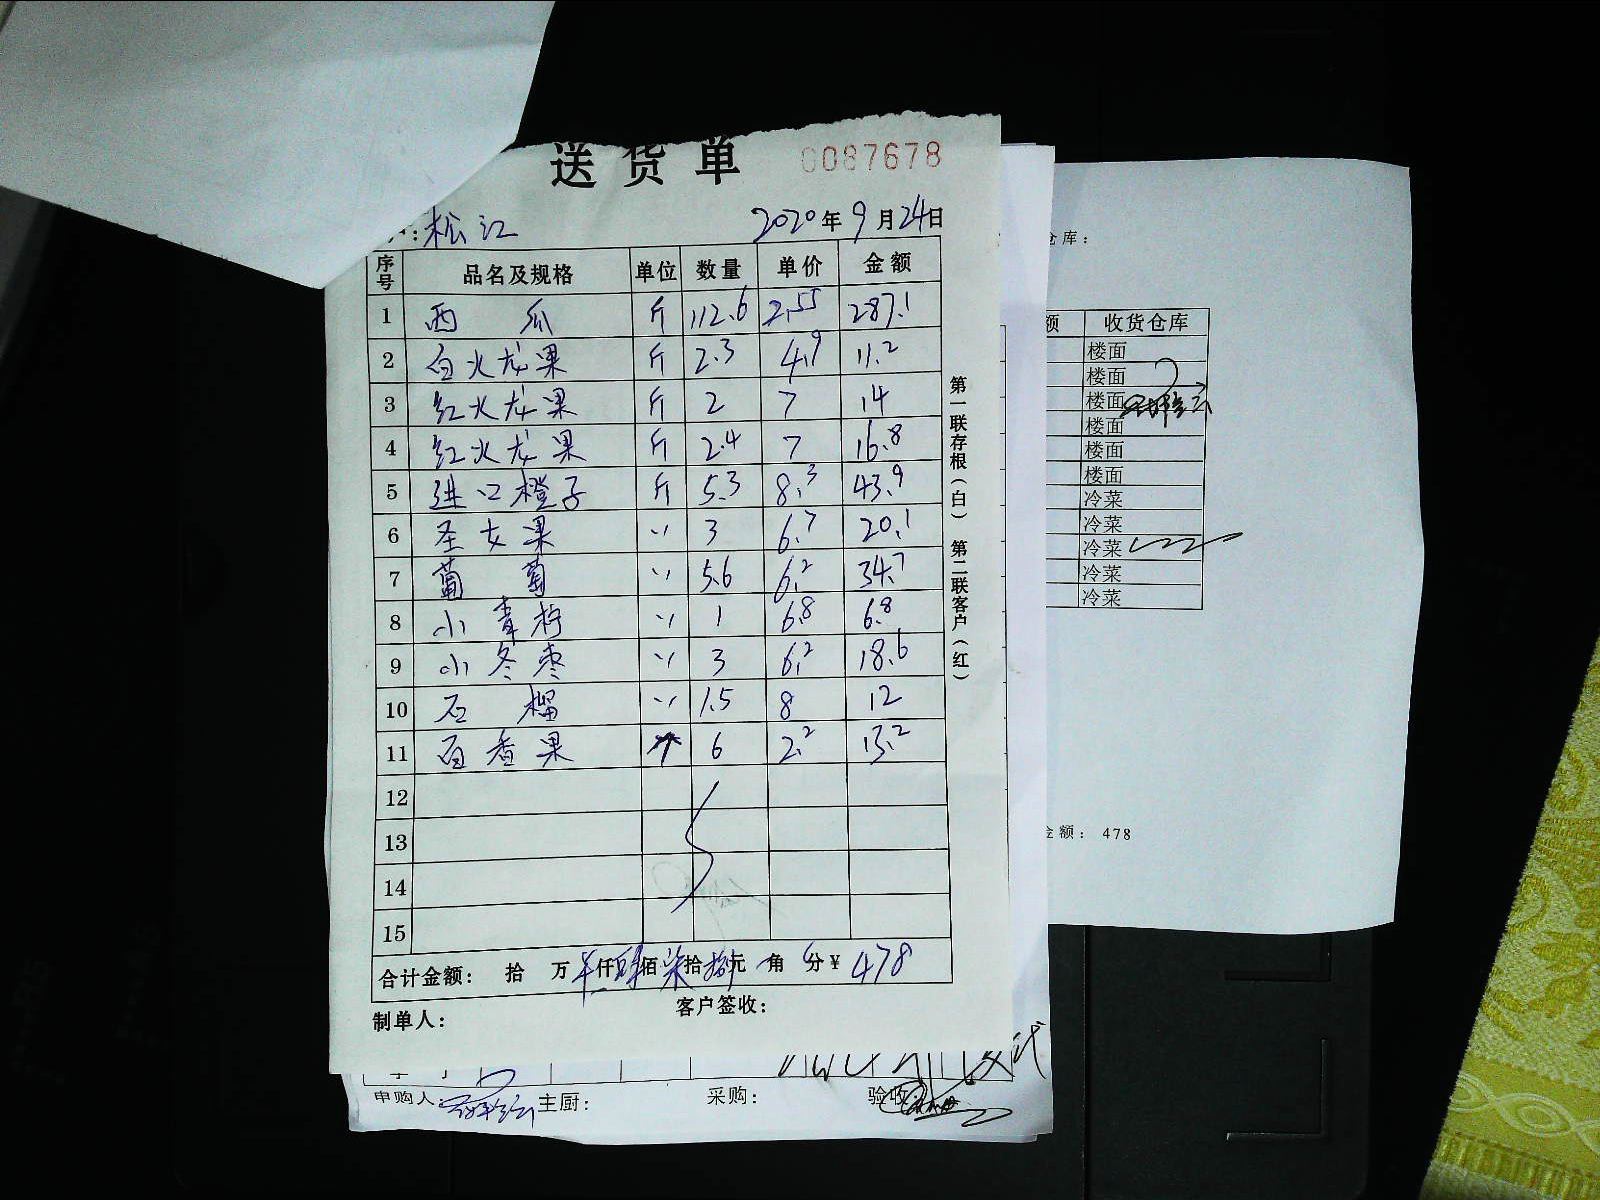 送货单 0087678
松江 2020年9月24日
序号 品名及规格 单位 数量 单价 金额
1 西瓜 斤 112.6 2.55 287.1
2 白火龙果 斤 2.3 4.9 11.2
3 红火龙果 斤 2 7 14
4 红火龙果 斤 2.4 7 16.8
5 进口橙子 斤 5.3 8.3 43.9
6 圣女果 〃 3 6.7 20.1
7 葡萄 〃 5.6 6.2 34.7
8 小青柠 〃 1 6.8 6.8
9 小冬枣 〃 3 6.2 18.6
10 石榴 〃 1.5 8 12
11 百香果 个 6 2.2 13.2
12
13
14
15
合计金额: 拾 万 仟肆佰柒拾捌元 角 分¥ 478
制单人: 客户签收:
第一联存根(白) 第二联客户(红)
申购人: 主厨: 采购: 验收
仓库:
额 收货仓库
楼面
楼面
楼面
楼面
楼面
楼面
冷菜
冷菜
冷菜
冷菜
冷菜
金额: 478